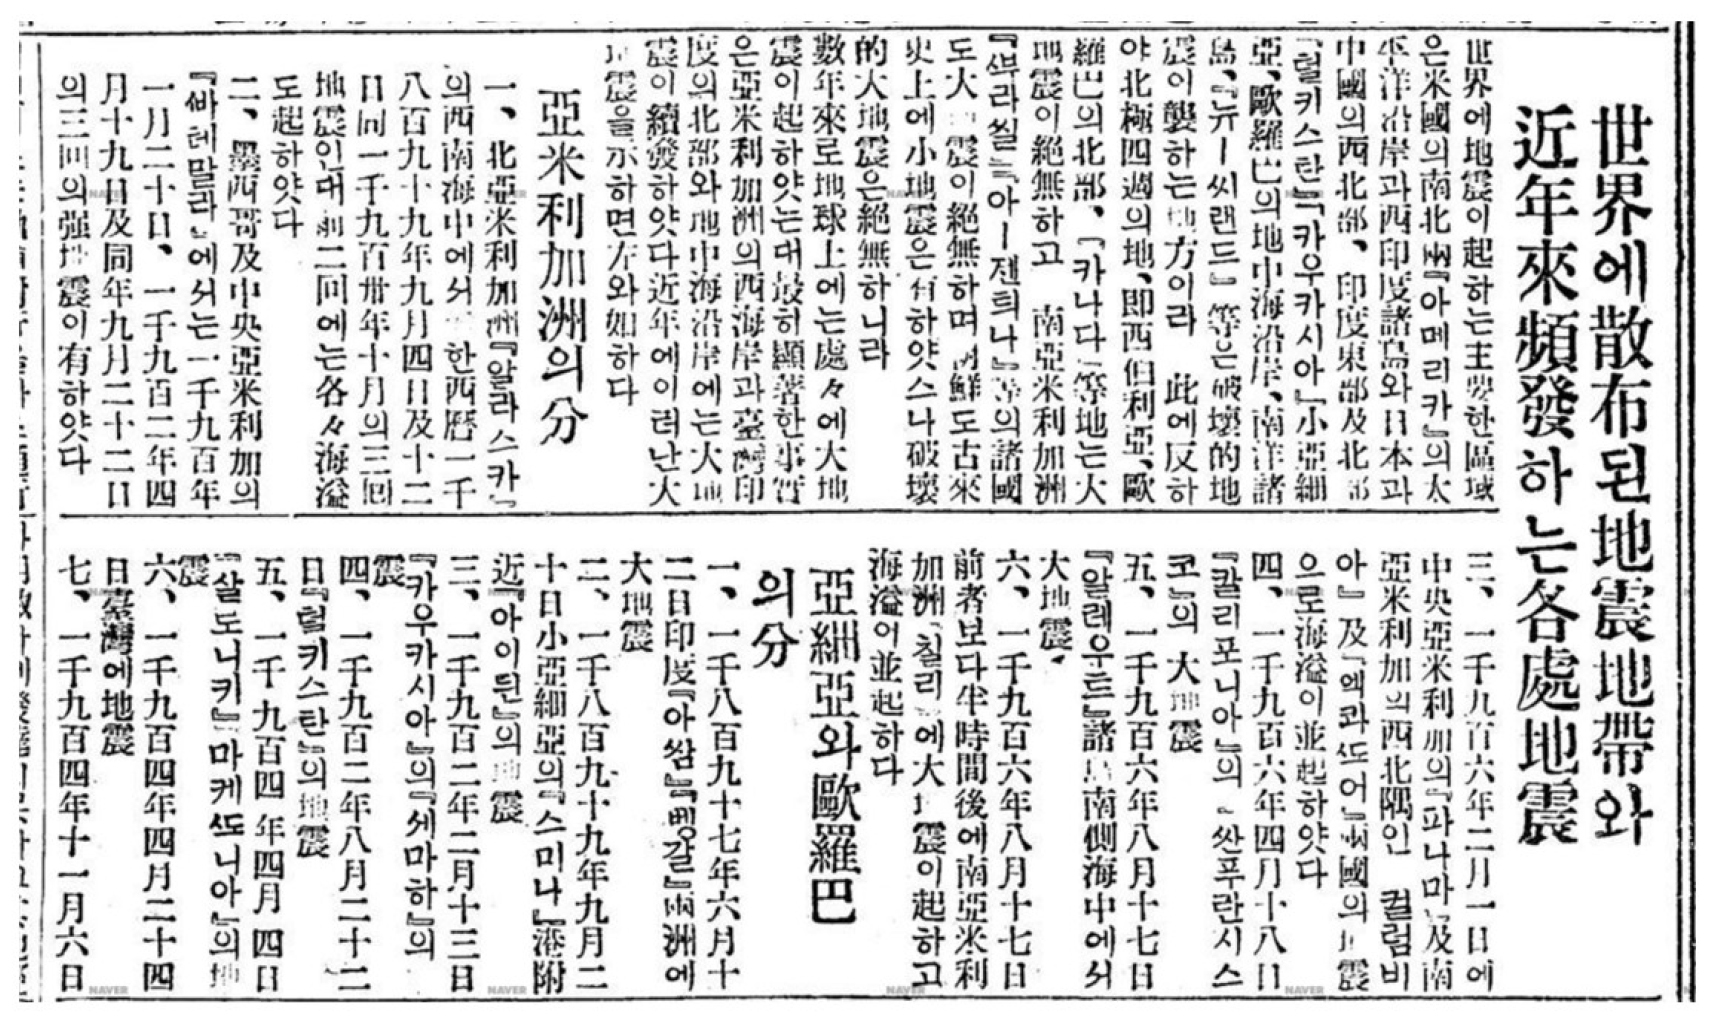 世界에散布된地震地帶와
近年來頻發하는各處地震
世界에地震이起하는主要한區域
은米國의南北兩『아메리카』의太
平洋沿岸과西印度諸島와日本과
中國의西北部、印度東部及北部
『털키스탄』『카우카시아』小亞細
亞、歐羅巴의地中海沿岸、南洋諸
島、『뉴ー씨랜드』等은破壞的地
震이襲하는地方이라 此에反하
야北極四週의地、即西伯利亞、歐
羅巴의北部、『카나다』等地는大
地震이絕無하고 南亞米利加洲
『ᄲᅮ라씰』『아ー젠틔나』等의諸國
도大地震이絕無하며朝鮮도古來
史上에小地震은有하얏스나破壞
的大地震은絕無하니라
數年來로地球上에는處々에大地
震이起하얏는대最히顯著한事實
은亞米利加洲의西海岸과臺灣印
度의北部와地中海沿岸에는大地
震이續發하얏다近年에이러난大
地震을示하면左와如하다
亞米利加洲의分
一、北亞米利加洲『알라스카』
의西南海中에서 한西曆一千
八百九十九年九月四日及十二
日同一千九百卅年十月의三回
地震인대前二回에는各々海溢
도起하얏다
二、墨西哥及中央亞米利加의
『ᄲᅡ테말라』에서는一千九百年
一月二十日、一千九百二年四
月十九日及同年九月二十二日
의三回의强地震이有하얏다
三、一千九百六年二月一日에
中央亞米利加의『파나마』及南
亞米利加의西北隅인 컬럼비
아』及『엑콰ᄯᅩ어』兩國의地震
으로海溢이並起하얏다
四、一千九百六年四月十八日
『칼리포니아』의『싼푸란시스
코』의大地震
五、一千九百六年八月十七日
『알레우트』諸島南側海中에서
大地震
六、一千九百六年八月十七日
前者보다半時間後에南亞米利
加洲『칠리』에大地震이起하고
海溢이並起하다
亞細亞와歐羅巴
의分
一、一千八百九十七年六月十
二日印度『아쌈』『벵갈』兩洲에
大地震
二、一千八百九十九年九月二
十日小亞細亞의『스미나』港附
近『아이듼』의地震
三、一千九百二年二月十三日
『카우카시아』의『세마하』의
震
四、一千九百二年八月二十二
日『털키스탄』의地震
五、一千九百四年四月四日
『살도니키』마케ᄯᅩ니아』의地
震
六、一千九百四年四月二十四
日臺灣에地震
七、一千九百四年十一月六日